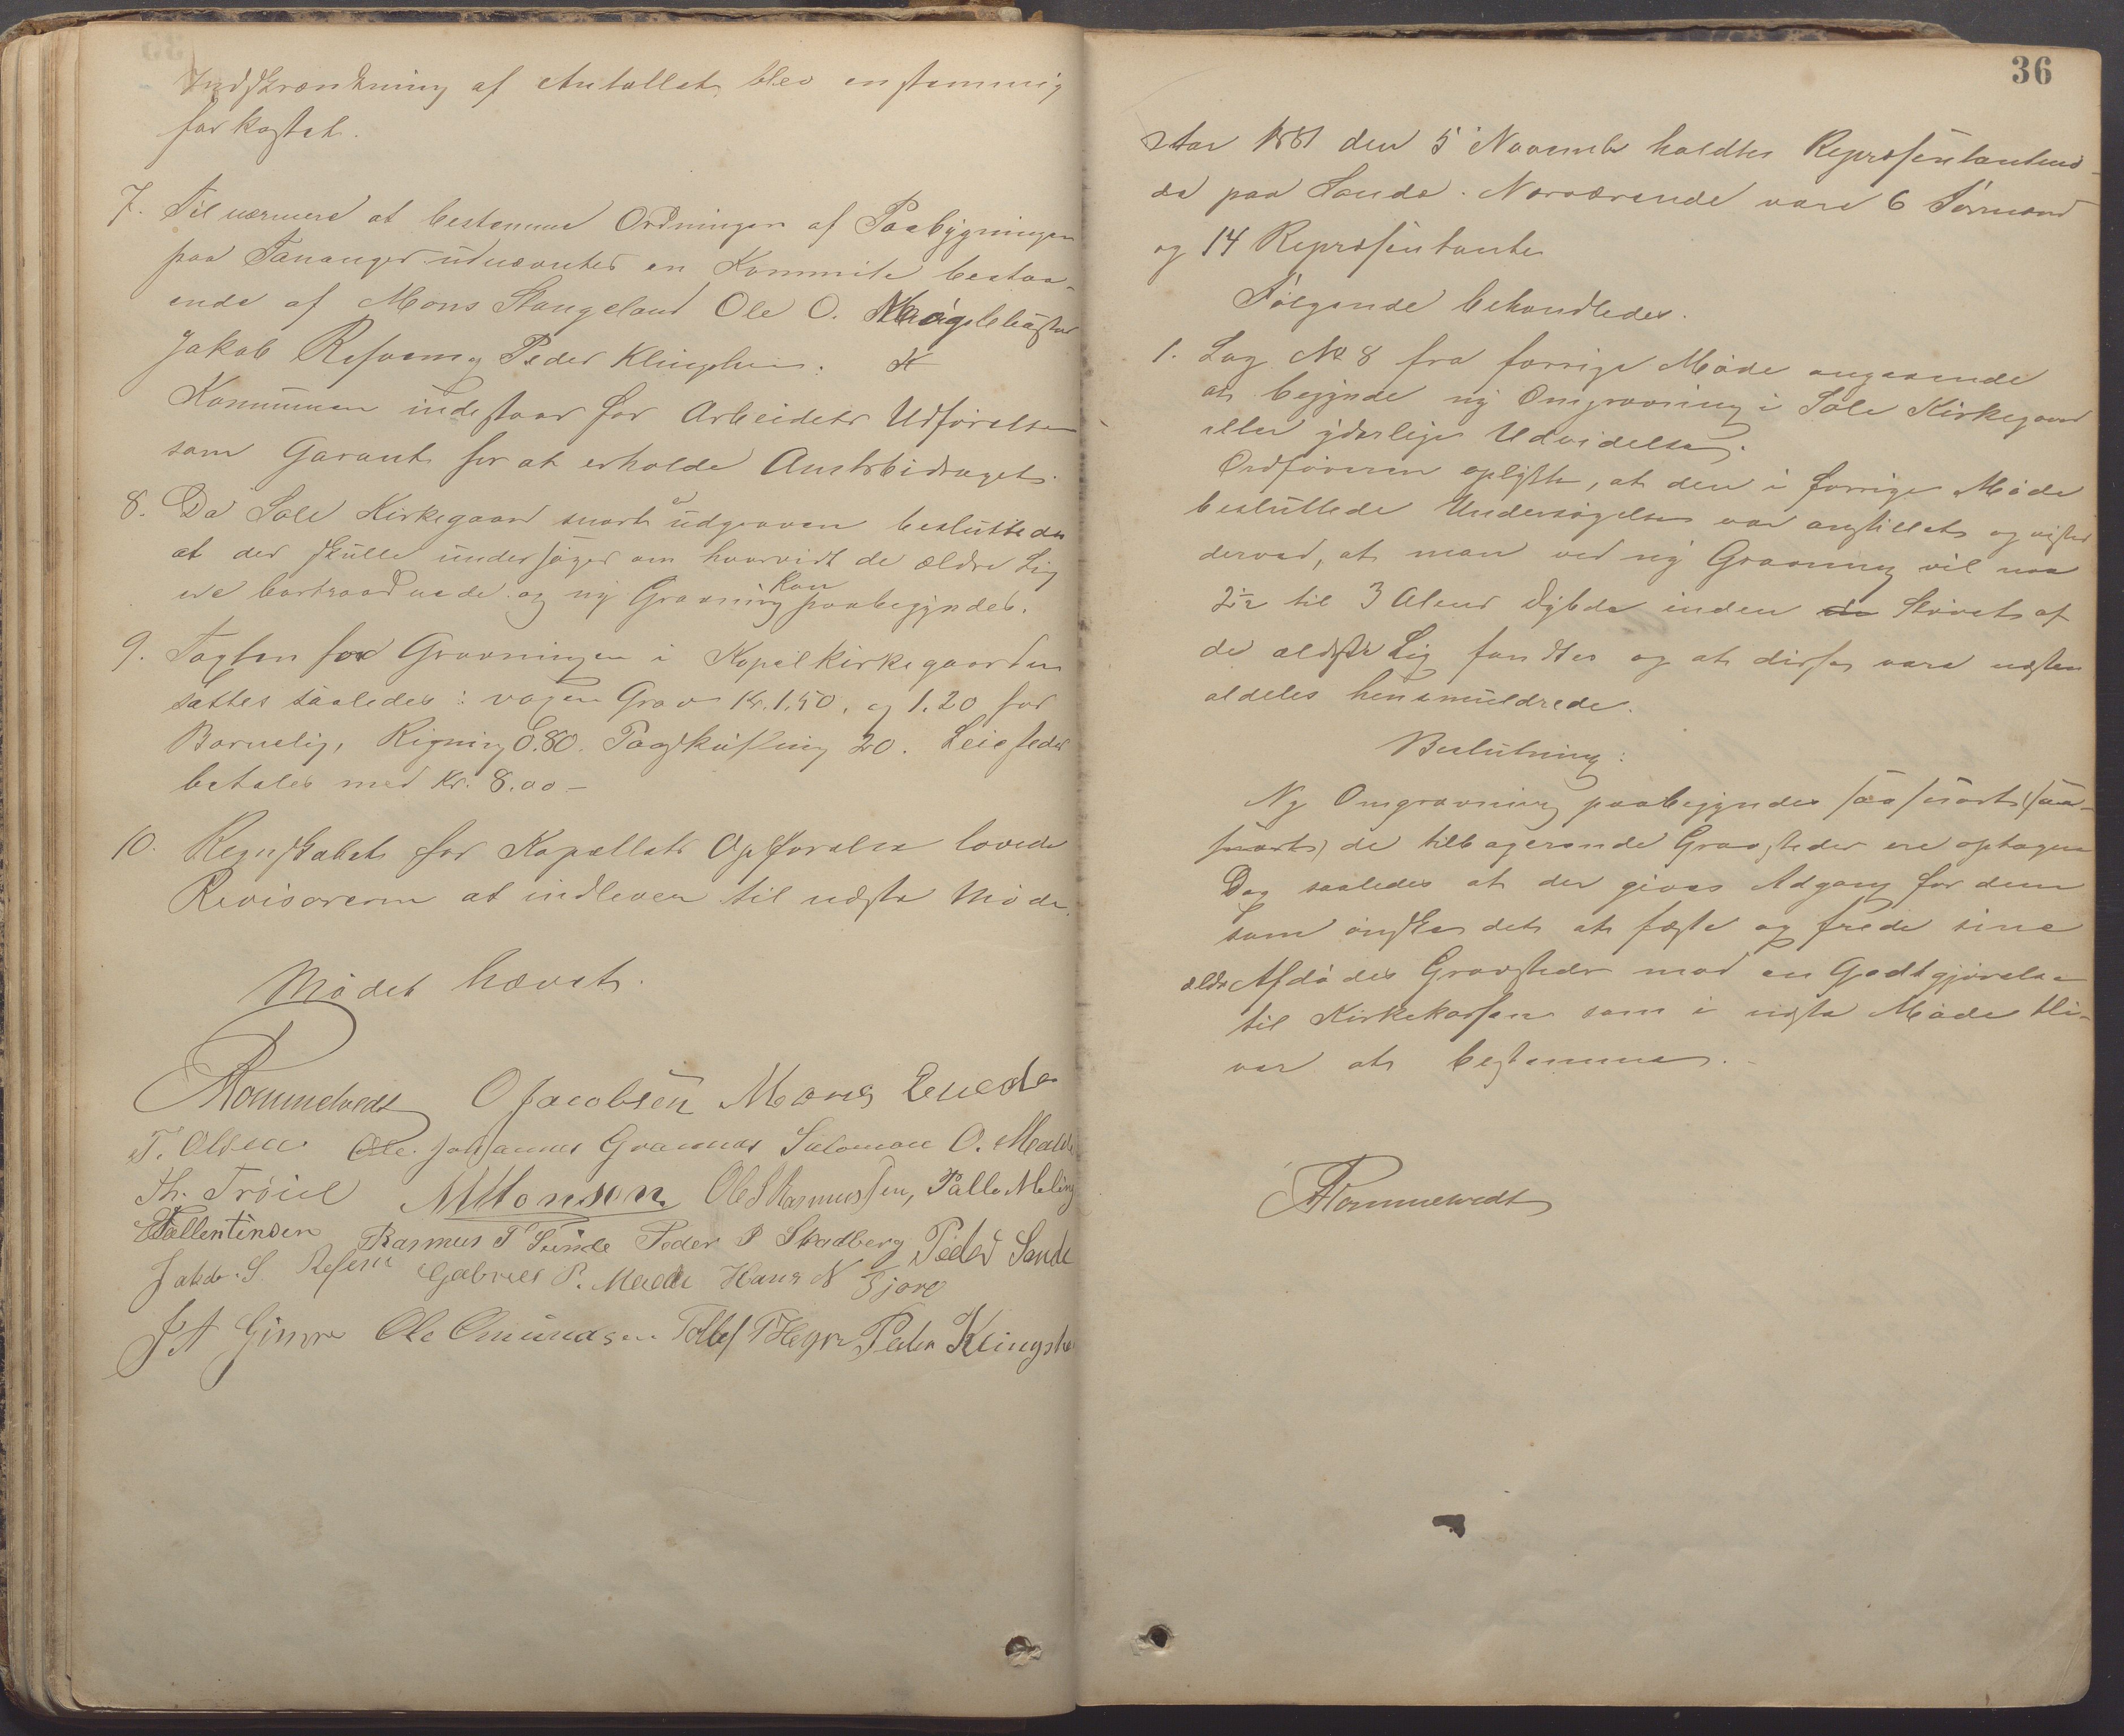 Indskrænkning af Antallet blev enstemmig
forkastet.
7. Til nærmere at bestemme Ordningen af Paabygningen
paa Tananger udnævntes en Kommite bestaa-
ende af Mons Stangeland Ole O.
Jakob Risnes og Peder Klingsheim.
Kommunen indestaar for Arbeidets Udførelse
som Garant for at erholde Amtsbidraget.
8. Da Sole Kirkegaard snart er udgraven besluttedes
at der skulle undersøges om hvorvidt de ældre Lig
ere bortraadnede og ny Gravning kan paabegyndes.
9. Taxten for Gravningen i Kapelkirkegaarden
sættes saaledes: voxen Grav Kr. 1.50. og 1.20 for
Barnelig, Rigning 0.80. 20. Leiesteder
betales med Kr. 8.00 -
10. Regnskabet for Kapellets Opførelse lovede
Revisorerne at indlevere til næste Møde.
Mødet hævet.
Rommetvedt O Jacobsen Mons
T. Olsen Ole Johannes Grannes Salomon O. Malde
Th. Trøiel M Monson Ole S Rasmussen, Palle Meling
Vallentinsen Rasmus T Sunde Peder P Stradberg Peder Sande
Jakob S. Gabriel P. Malde Hans N
J A Gimre Ole Omundsen Tollef T Hegre Peder Klingsheim
36
Aar 1881 den 5 November holdtes Repræsentantmø-
de paa Sande. Nærværende vare 6 Formænd
og 14 Repræsentanter
Følgende behandledes.
1. Sag No 8 fra forrige Møde angaaende
at begynde ny Omgravning i Sole Kirkegaard
eller yderlige Udvidelse.
Ordføreren oplyste, at den i forrige Møde
besluttede Undersøgelse var anstillet og vistes
derved, at man ved ny Gravning vil naa
2½ til 3 Alens Dybde inden Levnet af
de ældste Lig fandtes og at disse vare næsten
aldeles hensmuldrede.
Beslutning:
Ny Omgravning paabegyndes saasnart (saa-
snart) de tilbageværende Gravsteder ere optagne
Dog saaledes at der gives Adgang for dem
som ønsker det at fæste og frede sine
ældre Afdødes Gravsteder mod en Godtgjørelse
til Kirkekassen som i næste Møde bli-
ver at bestemme.
Rommetvedt